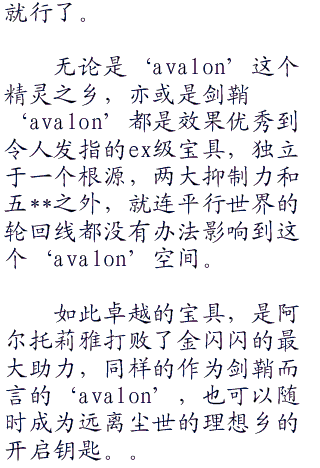 就行了。
无论是‘avalon’这个
精灵之乡，亦或是剑鞘
‘avalon’都是效果优秀到
令人发指的ex级宝具，独立
于一个根源，两大抑制力和
五**之外，就连平行世界的
轮回线都没有办法影响到这
个‘avalon’空间。
如此卓越的宝具，是阿
尔托莉雅打败了金闪闪的最
大助力，同样的作为剑鞘而
言的‘avalon’，也可以随
时成为远离尘世的理想乡的
开启钥匙。。